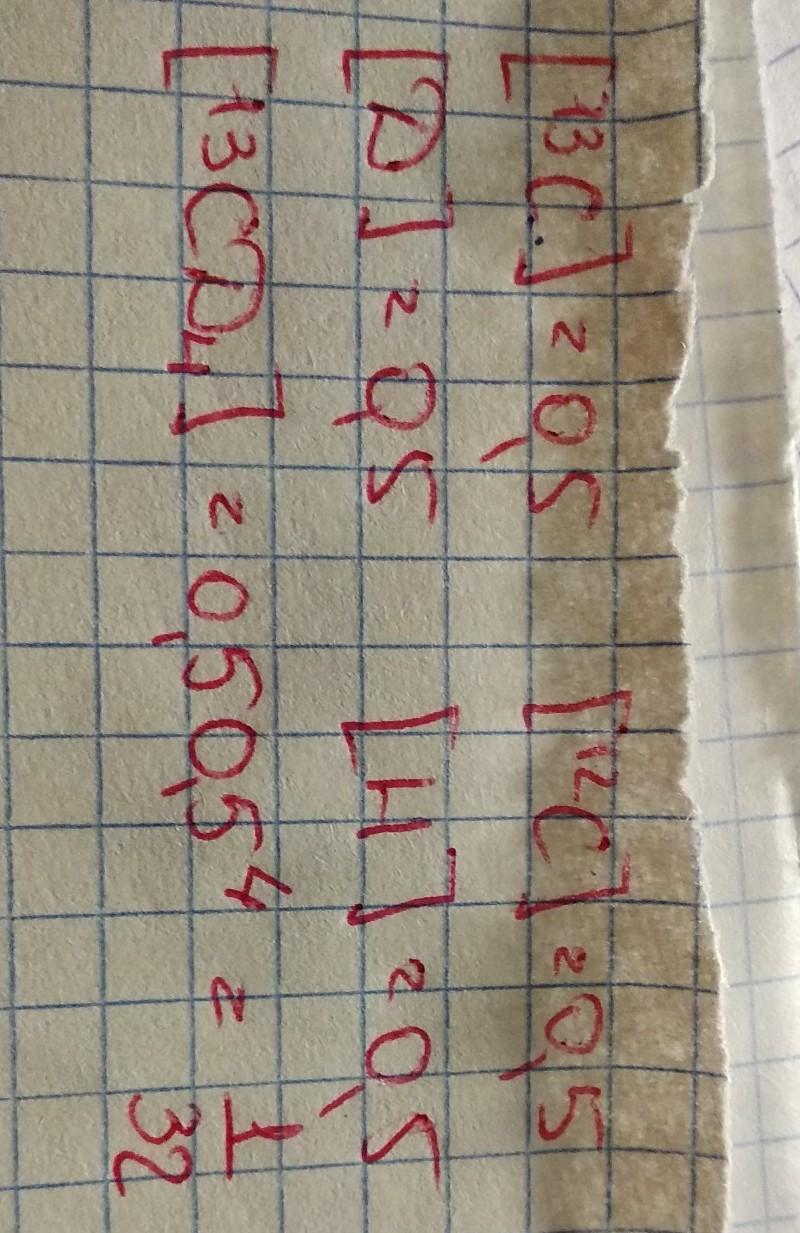 [¹³C] = 0,5 [¹²C] = 0,5
[D] = 0,5 [H] = 0,5
[¹³CD₄] = 0,5 0,5⁴ = 1/32